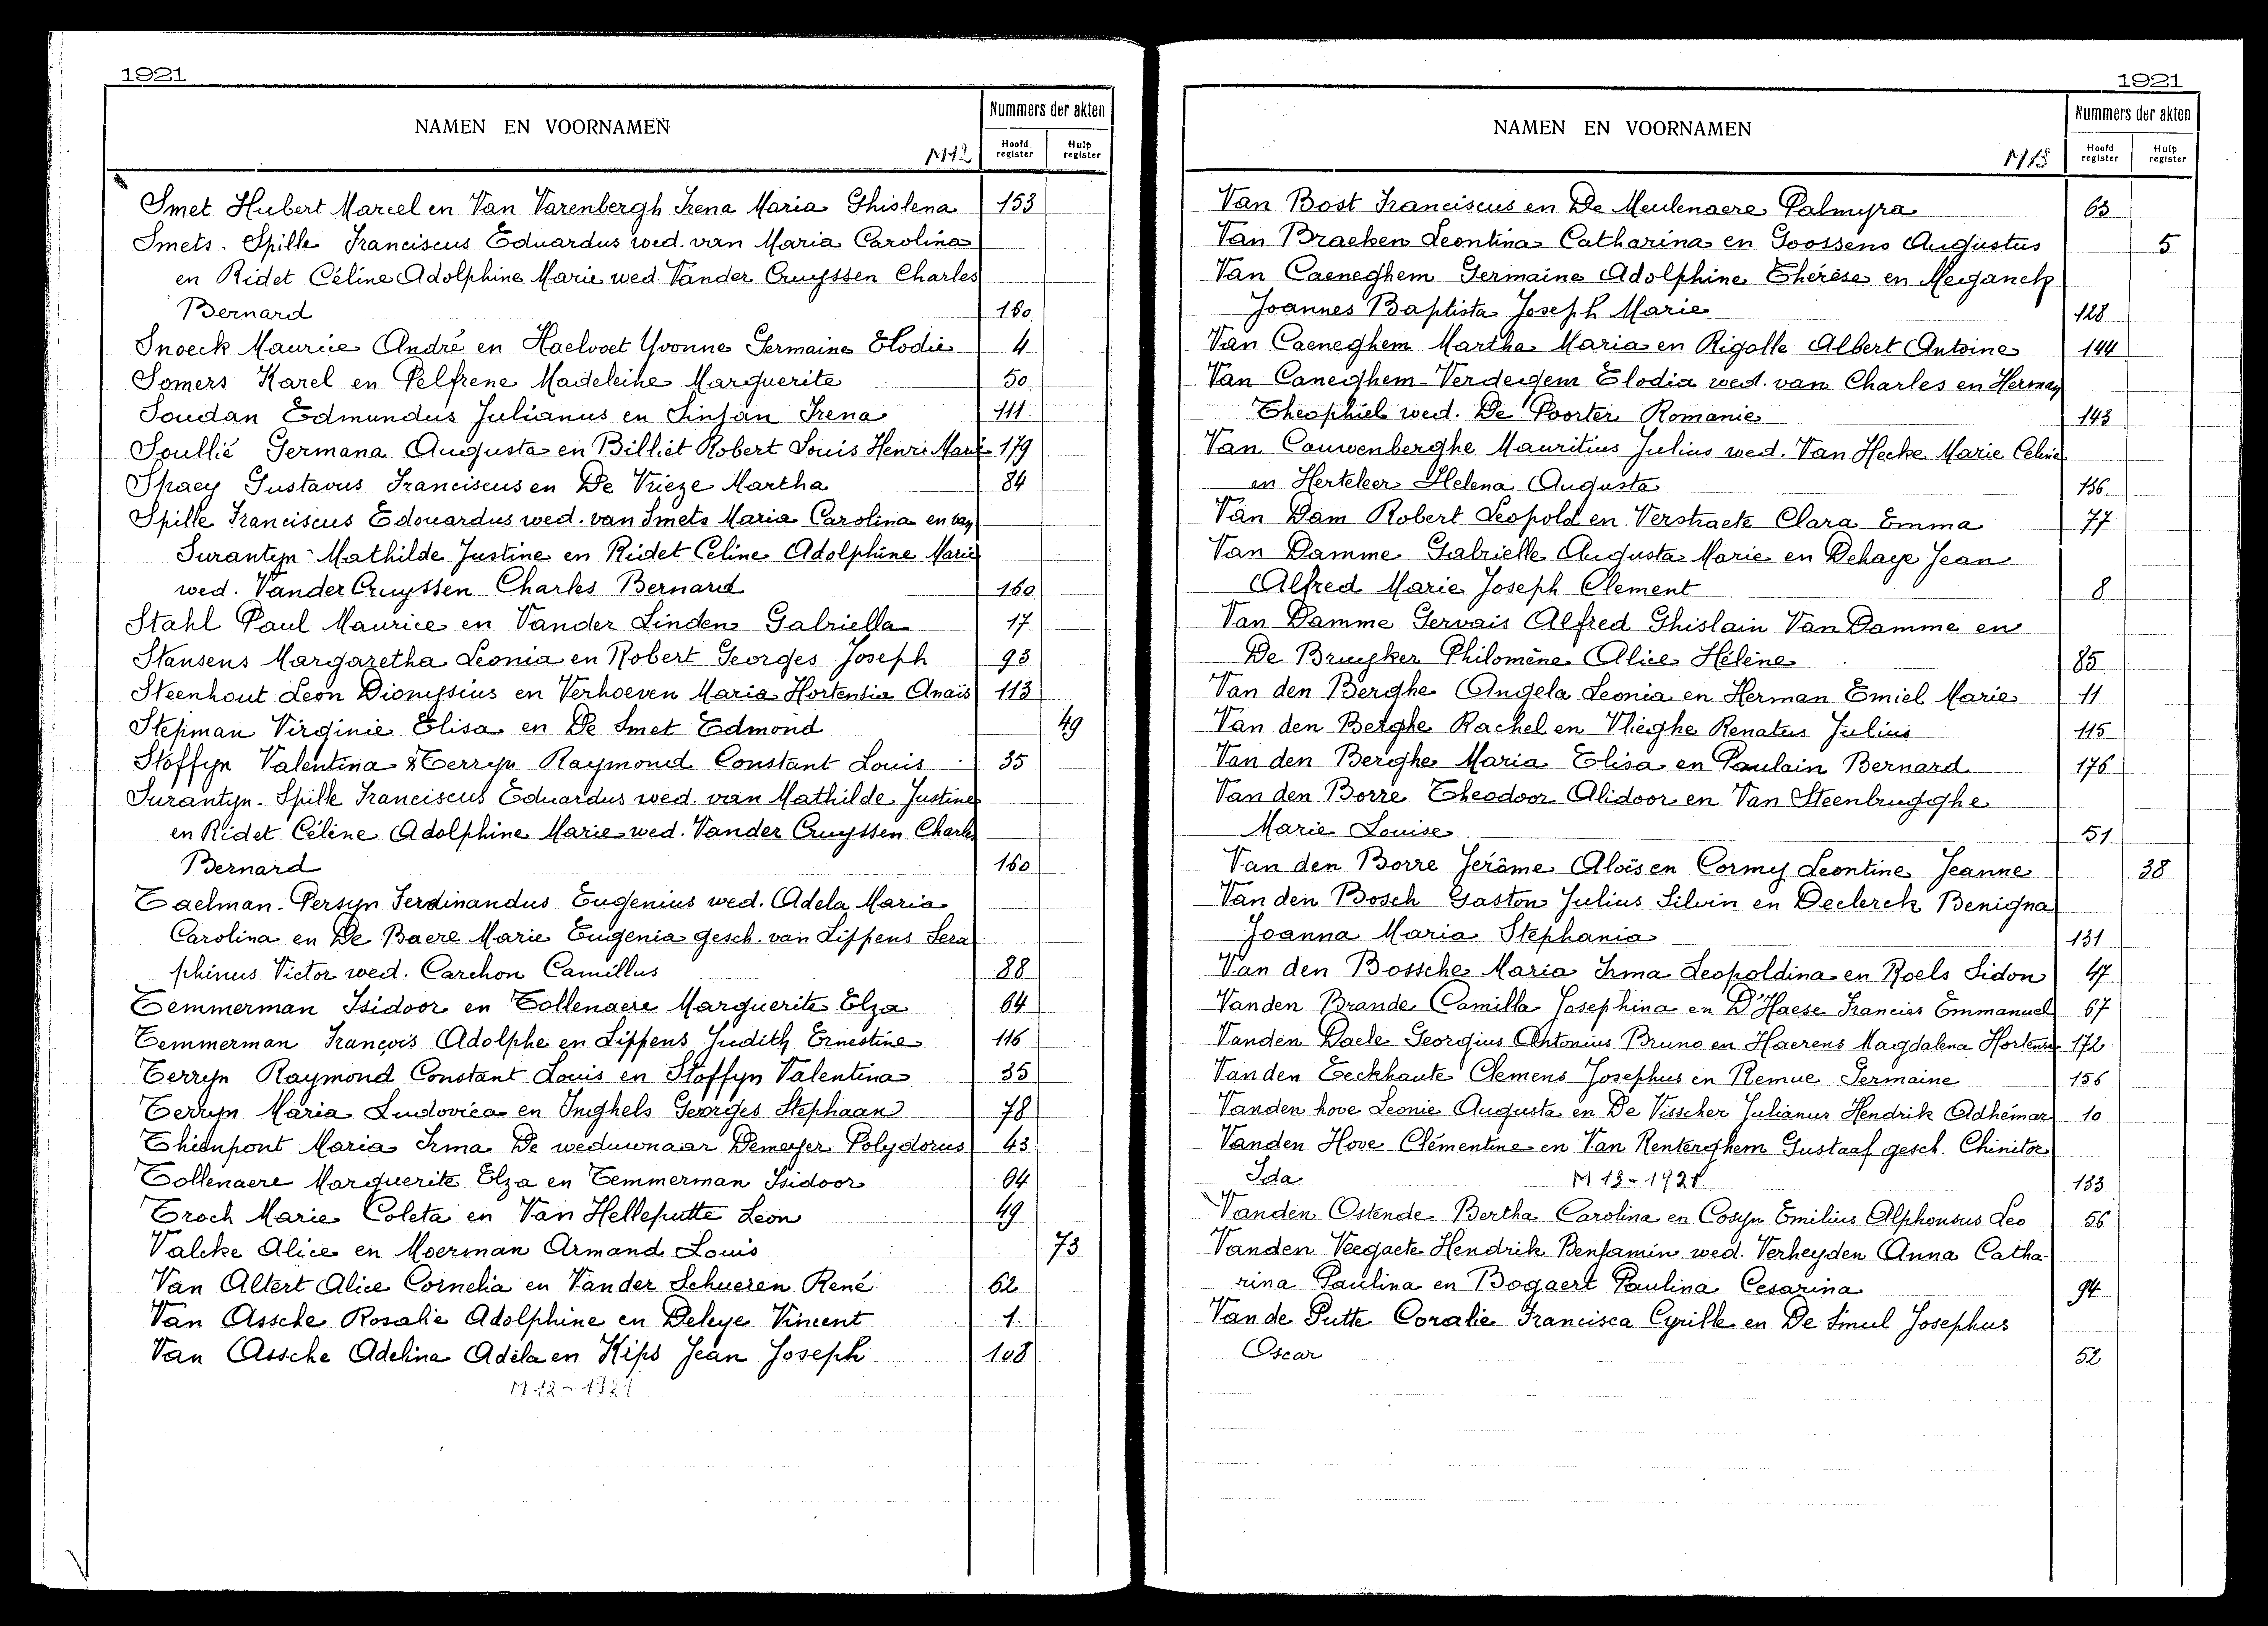 1921
NAMEN EN VOORNAMEN
Nummers der akten
M12
Hoofd register
Hulp register
Smet Hubert Marcel en Van Varenbergh Irena Maria Ghislena 153
Smets - Spille Franciscus Eduardus wed. van Maria Carolina
en Ridet Céline Adolphine Marie wed. Vander Cruyssen Charles
Bernard 160
Snoeck Maurice André en Haelvoet Yvonne Germaine Elodie 4
Somers Karel en Pelfrene Madeleine Marguerite 50
Soudan Edmundus Julianus en Sinjan Irena 111
Soullié Germana Augusta en Billiet Robert Louis Henri Marie 179
Spaey Gustavus Franciscus en De Vrieze Martha 84
Spille Franciscus Edouardus wed. van Smets Maria Carolina en van
Surantyn Mathilde Justine en Ridet Celine Adolphine Marie
wed. Vander Cruyssen Charles Bernard 160
Stahl Paul Maurice en Vander Linden Gabriella 17
Stausens Margaretha Leonia en Robert Georges Joseph 93
Steenhout Leon Dionysius en Verhoeven Maria Hortensia Anaïs 113
Stepman Virginie Elisa en De Smet Edmond 49
Stoffyn Valentina & Terryn Raymond Constant Louis 35
Surantyn - Spille Franciscus Eduardus wed. van Mathilde Justine
en Ridet Céline Adolphine Marie wed. Vander Cruyssen Charles
Bernard 160
Taelman - Persyn Ferdinandus Eugenius wed. Adela Maria
Carolina en De Baere Marie Eugenia gesch. van Lippens Sera
phinus Victor wed. Carchon Camillus 88
Temmerman Isidoor en Tollenaere Marguerite Elza 64
Temmerman François Adolphe en Lippens Judith Ernestine 116
Terryn Raymond Constant Louis en Stoffyn Valentina 35
Terryn Maria Ludovica en Inghels Georges Stephaan 78
Thienpont Maria Irma De weduwnaar Demeyer Polydorus 43
Tollenaere Marguerite Elza en Temmerman Isidoor 64
Troch Marie Coleta en Van Helleputte Léon 49
Valcke Alice en Moerman Armand Louis 73
Van Altert Alice Cornelia en Vander Schueren René 62
Van Assche Rosalie Adolphine en Deleye Vincent 1
Van Assche Adelina Adèla en Kips Jean Joseph 108
M 12 - 1921
1921
NAMEN EN VOORNAMEN
Nummers der akten
M13
Hoofd register
Hulp register
Van Bost Franciscus en De Meulenaere Palmyra 63
Van Braeken Leontina Catharina en Goossens Augustus 5
Van Caeneghem Germaine Adolphine Thérèse en Meganck
Joannes Baptista Joseph Marie 128
Van Caeneghem Martha Maria en Rigolle Albert Antoine 144
Van Caneghem - Verdegem Elodia wed. van Charles en Herman
Theophiel wed. De Poorter Romanie 143
Van Cauwenberghe Mauritius Julius wed. Van Hecke Marie Celine
en Herteleer Helena Augusta 136
Van Dam Robert Leopold en Verstraete Clara Emma 77
Van Damme Gabrielle Augusta Marie en Dehaye Jean
Alfred Marie Joseph Clement 8
Van Damme Gervais Alfred Ghislain Van Damme en
De Bruyker Philomène Alice Hélène 85
Van den Berghe Angela Leonia en Herman Emiel Marie 11
Van den Berghe Rachel en Vlieghe Renatus Julius 115
Van den Berghe Maria Elisa en Paulain Bernard 176
Van den Borre Theodoor Alidoor en Van Steenbrugghe
Marie Louise 51
Van den Borre Jérôme Aloïs en Cormey Leontine Jeanne 38
Van den Bosch Gaston Julius Silvin en Declerck Benigna
Joanna Maria Stephania 131
Van den Bossche Maria Irma Leopoldina en Roels Sidon 47
Vanden Brande Camilla Josephina en D'Haese Francies Emmanuel 67
Vanden Daele Georgius Antonius Bruno en Haerens Magdalena Hortense 172
Vanden Eeckhaute Clemens Josephus en Remue Germaine 156
Vanden hove Leonie Augusta en De Visscher Julianus Hendrik Adhémar 10
Vanden Hove Clémentine en Van Renterghem Gustaaf gesch. Chinitor
Ida M 13 - 1921 133
Vanden Ostende Bertha Carolina en Cosyn Emilius Alphonsus Leo 56
Vanden Veegaete Hendrik Benjamin wed. Verheyden Anna Catha-
rina Paulina en Bogaert Paulina Cesarina 94
Van de Putte Coralie Francisca Cyrille en De Smul Josephus
Oscar 52